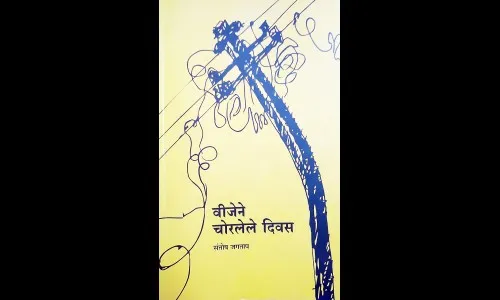 वीजेने
चोरलेले दिवस
संतोष जगताप